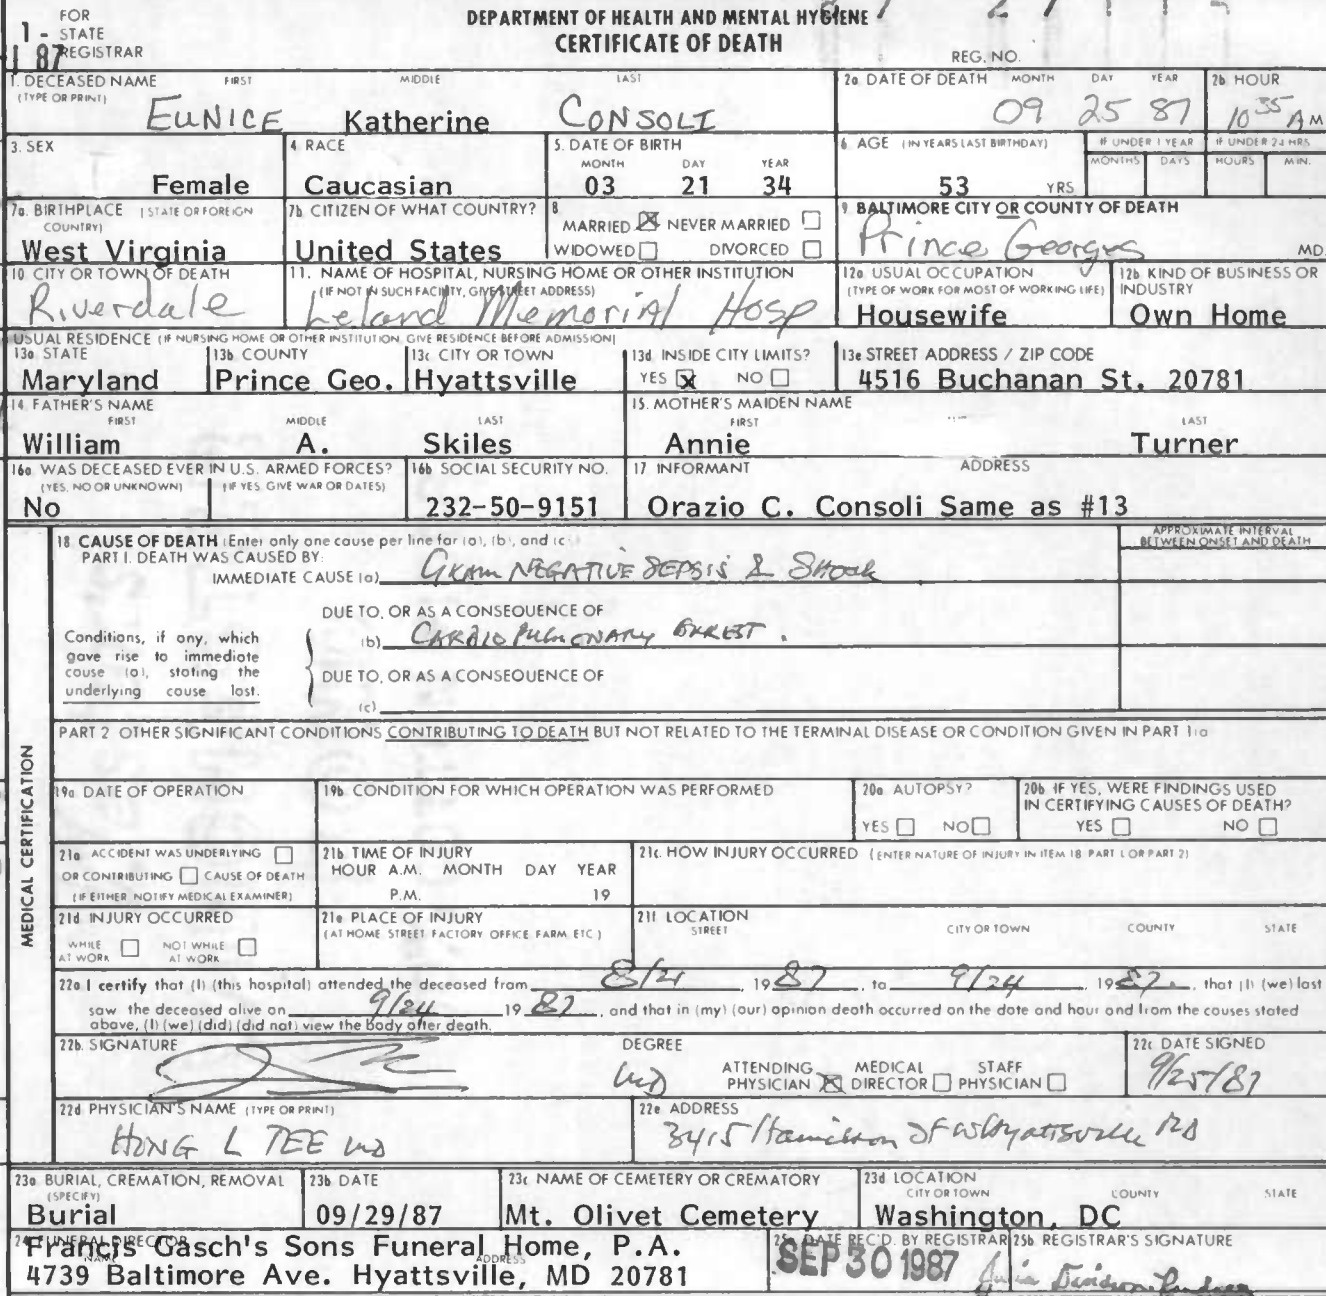 FOR
1 - STATE
REGISTRAR
87
DEPARTMENT OF HEALTH AND MENTAL HYGIENE
CERTIFICATE OF DEATH
REG. NO.
1. DECEASED NAME FIRST MIDDLE LAST
(TYPE OR PRINT)
EUNICE Katherine CONSOLI
2a. DATE OF DEATH MONTH DAY YEAR
09 25 87
2b HOUR
10 35 A M
3. SEX
Female
4. RACE
Caucasian
5. DATE OF BIRTH
MONTH DAY YEAR
03 21 34
6. AGE (IN YEARS LAST BIRTHDAY)
53 YRS
IF UNDER 1 YEAR
MONTHS DAYS
IF UNDER 24 HRS
HOURS MIN.
7a. BIRTHPLACE (STATE OR FOREIGN
COUNTRY)
West Virginia
7b. CITIZEN OF WHAT COUNTRY?
United States
8
MARRIED ☒ NEVER MARRIED ☐
WIDOWED ☐ DIVORCED ☐
9. BALTIMORE CITY OR COUNTY OF DEATH
Prince Georges MD.
10. CITY OR TOWN OF DEATH
Riverdale
11. NAME OF HOSPITAL, NURSING HOME OR OTHER INSTITUTION
(IF NOT IN SUCH FACILITY, GIVE STREET ADDRESS)
Leland Memorial Hosp
12a. USUAL OCCUPATION
(TYPE OF WORK FOR MOST OF WORKING LIFE)
Housewife
12b. KIND OF BUSINESS OR
INDUSTRY
Own Home
USUAL RESIDENCE (IF NURSING HOME OR OTHER INSTITUTION GIVE RESIDENCE BEFORE ADMISSION)
13a. STATE
Maryland
13b COUNTY
Prince Geo.
13c. CITY OR TOWN
Hyattsville
13d INSIDE CITY LIMITS?
YES ☒ NO ☐
13e STREET ADDRESS / ZIP CODE
4516 Buchanan St. 20781
14. FATHER'S NAME
FIRST MIDDLE LAST
William A. Skiles
15. MOTHER'S MAIDEN NAME
FIRST LAST
Annie Turner
16a WAS DECEASED EVER IN U.S. ARMED FORCES?
(YES, NO OR UNKNOWN) (IF YES, GIVE WAR OR DATES)
No
16b SOCIAL SECURITY NO.
232-50-9151
17 INFORMANT ADDRESS
Orazio C. Consoli Same as #13
MEDICAL CERTIFICATION
18 CAUSE OF DEATH (Enter only one cause per line for (a), (b), and (c)
PART I. DEATH WAS CAUSED BY:
APPROXIMATE INTERVAL
BETWEEN ONSET AND DEATH
IMMEDIATE CAUSE (a) GRAM NEGATIVE SEPSIS & SHOCK
DUE TO, OR AS A CONSEQUENCE OF
(b) CARDIOPULMONARY ARREST.
Conditions, if any, which
gave rise to immediate
cause (a), stating the
underlying cause last.
DUE TO, OR AS A CONSEQUENCE OF
(c)
PART 2 OTHER SIGNIFICANT CONDITIONS CONTRIBUTING TO DEATH BUT NOT RELATED TO THE TERMINAL DISEASE OR CONDITION GIVEN IN PART 1(a
19a DATE OF OPERATION
19b CONDITION FOR WHICH OPERATION WAS PERFORMED
20a AUTOPSY?
YES ☐ NO ☐
20b IF YES, WERE FINDINGS USED
IN CERTIFYING CAUSES OF DEATH?
YES ☐ NO ☐
21a ACCIDENT WAS UNDERLYING ☐
OR CONTRIBUTING ☐ CAUSE OF DEATH
(IF EITHER NOTIFY MEDICAL EXAMINER)
21b TIME OF INJURY
HOUR A.M. MONTH DAY YEAR
P.M. 19
21c. HOW INJURY OCCURRED (ENTER NATURE OF INJURY IN ITEM 18 PART 1, OR PART 2)
21d INJURY OCCURRED
WHILE ☐ NOT WHILE ☐
AT WORK AT WORK
21e PLACE OF INJURY
(AT HOME STREET FACTORY OFFICE FARM ETC)
21f LOCATION
STREET CITY OR TOWN COUNTY STATE
22a I certify that (I) (this hospital) attended the deceased from 8/21 1987, to 9/24 1987., that (I) (we) last
saw the deceased alive on 9/24 1987, and that in (my) (our) opinion death occurred on the date and hour and from the causes stated
above, (I) (we) (did) (did not) view the body after death.
22b. SIGNATURE DEGREE
MD
ATTENDING MEDICAL STAFF
PHYSICIAN ☒ DIRECTOR ☐ PHYSICIAN ☐
22c DATE SIGNED
9/25/87
22d PHYSICIAN'S NAME (TYPE OR PRINT)
HONG L TEE MD
22e ADDRESS
3415 Hamilton St W Hyattsville MD
23a BURIAL, CREMATION, REMOVAL
(SPECIFY)
Burial
23b DATE
09/29/87
23c NAME OF CEMETERY OR CREMATORY
Mt. Olivet Cemetery
23d LOCATION
CITY OR TOWN COUNTY STATE
Washington, DC
24 FUNERAL DIRECTOR
NAME ADDRESS
Francis Gasch's Sons Funeral Home, P.A.
4739 Baltimore Ave. Hyattsville, MD 20781
25a DATE REC'D. BY REGISTRAR
SEP 30 1987
25b. REGISTRAR'S SIGNATURE
Julia Davidson